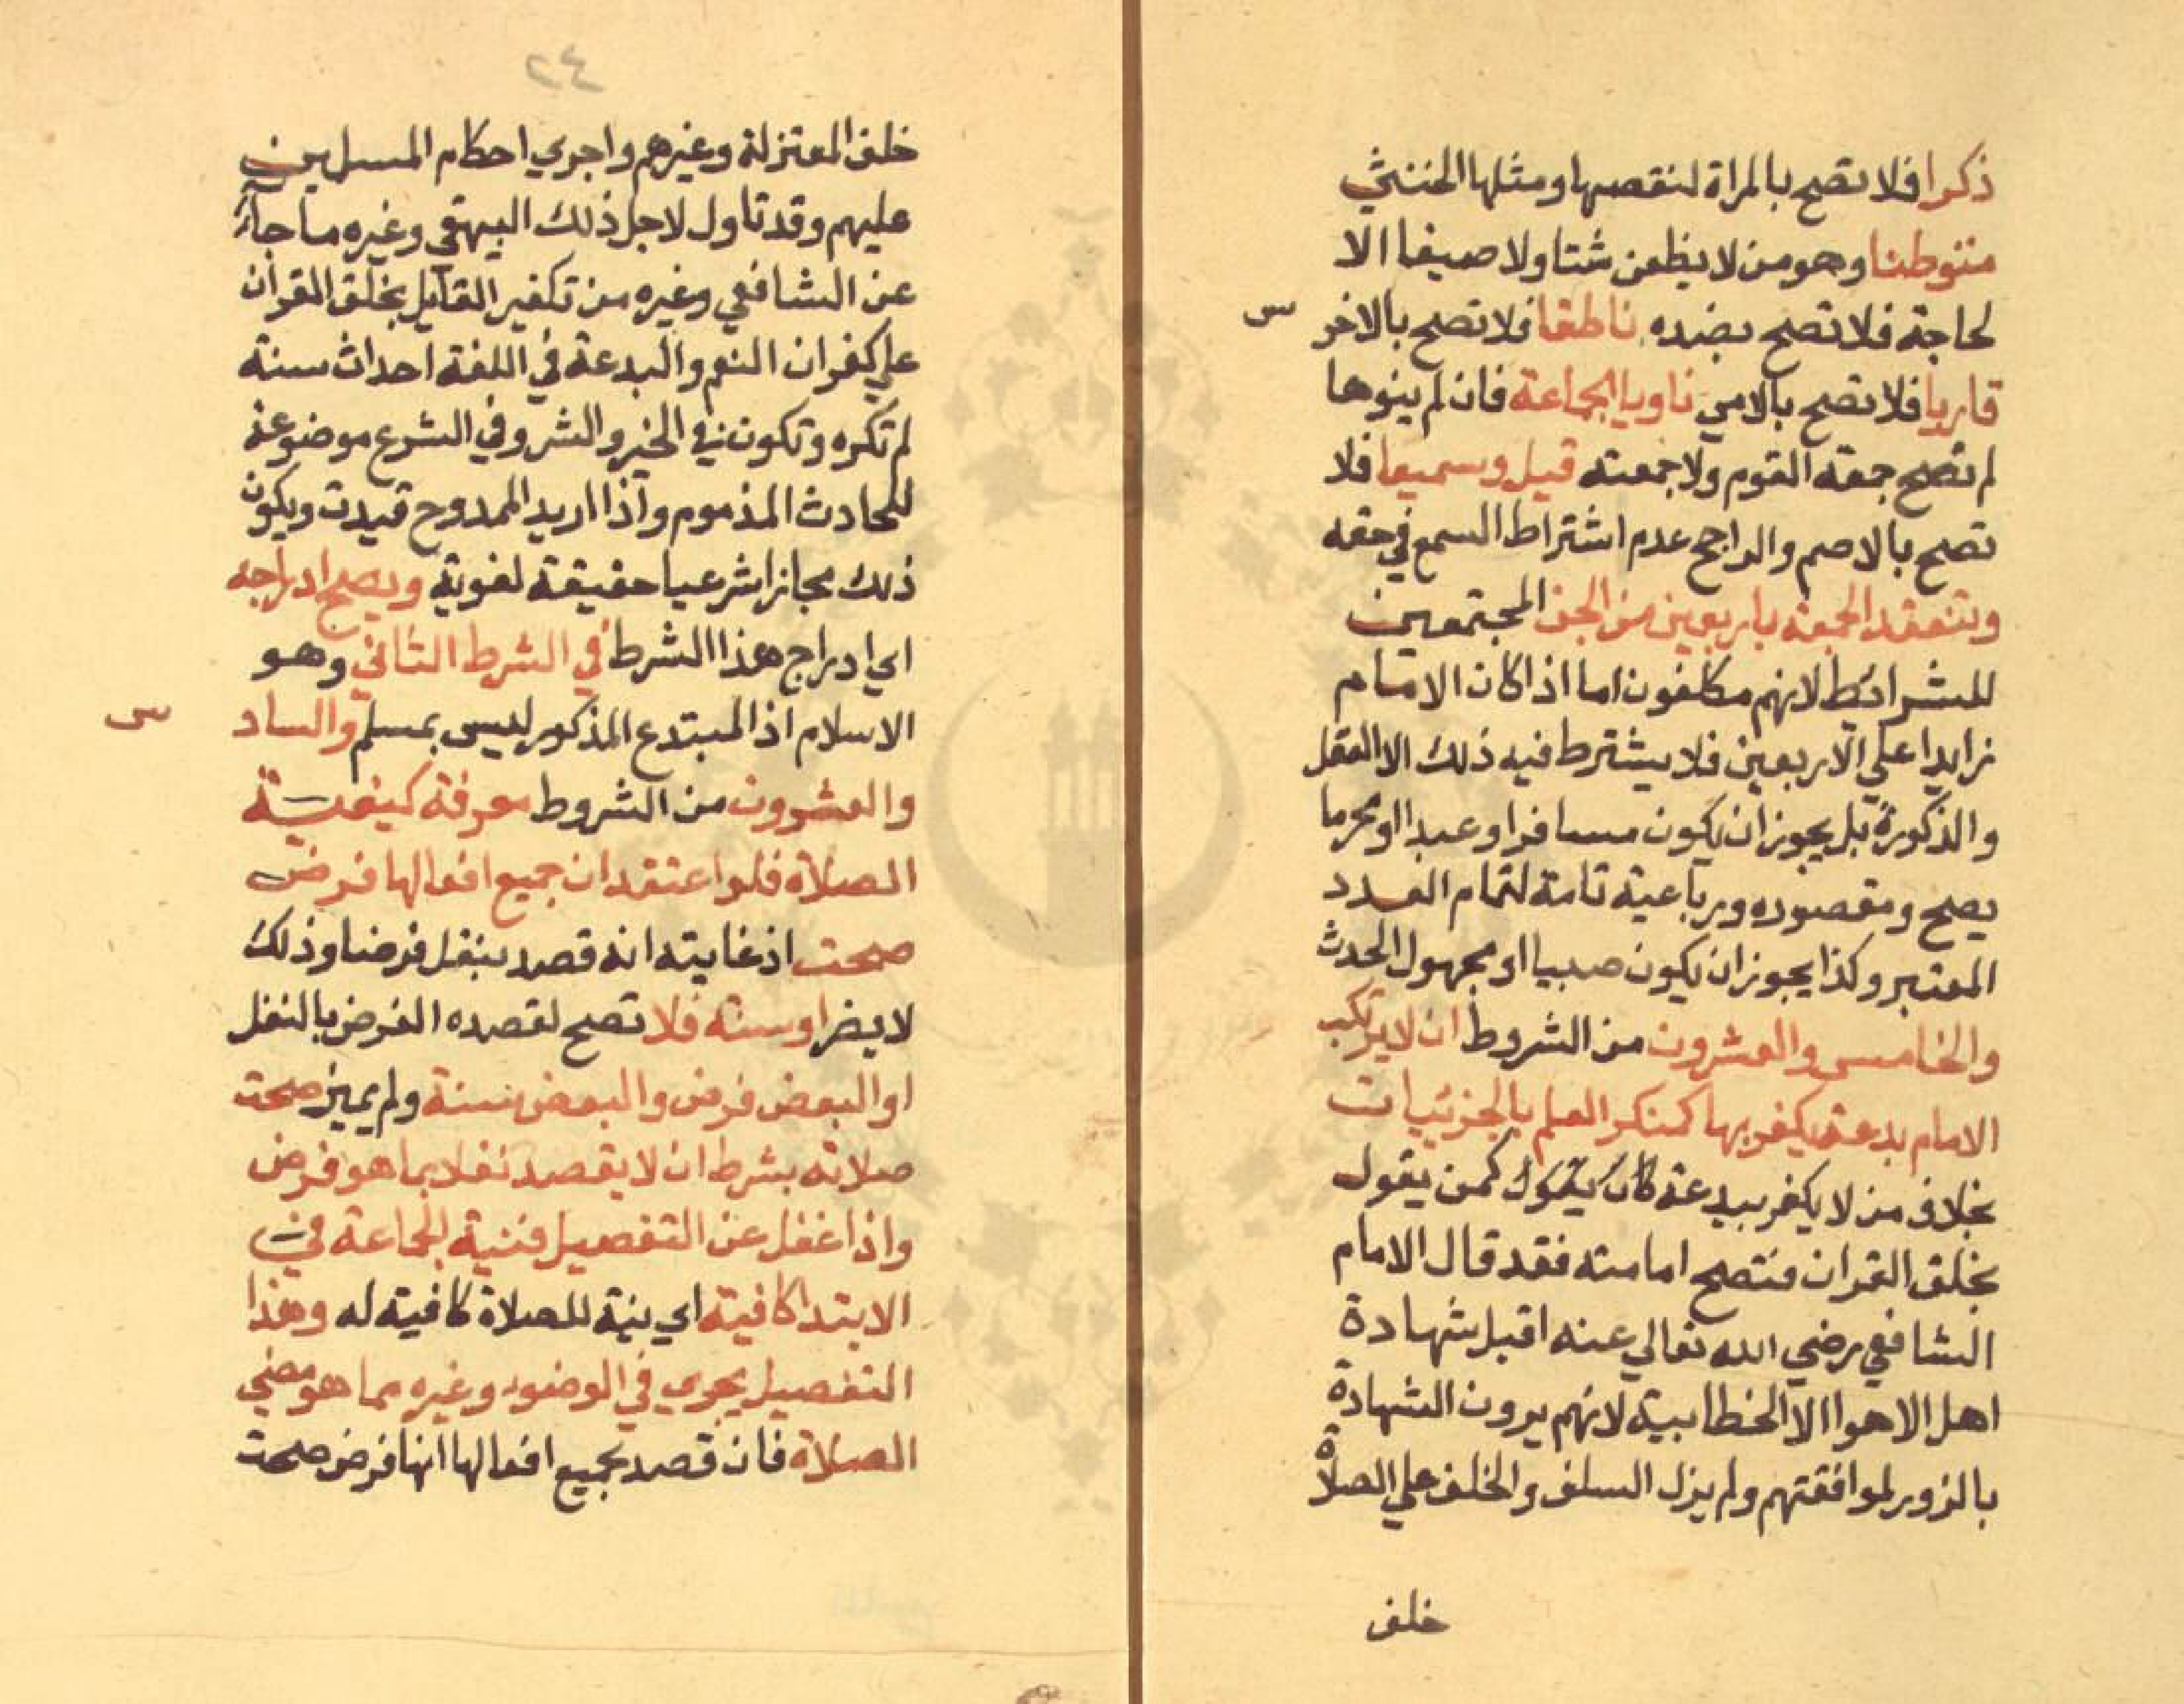 ذكرا فلا تصح بالمراة لنقصها ومثلها الخنثي
متوطنا وهو من لا يظعن شتا ولا صيفا الا
لحاجة فلا تصح بضده ناطقا فلا تصح بالاخر س
قاريا فلا تصح بالامي ناويا الجماعة فان لم ينوها
لم تصح جمعة القوم ولا جمعته قيل وسميعا فلا
تصح بالاصم والراجح عدم اشتراط السمع في حقه
وتنعقد الجمعة باربعين من الجن المجتمعين
للشرائط لانهم مكلفون اما اذا كان الامام
زايدا علي الاربعين فلا يشترط فيه ذلك الا العقل
والذكورة بل يجوز ان يكون مسافرا وعبدا او محرما
يصح ومقصوره ورباعية تامة لتمام العدد
المعتبر وكذا يجوز ان يكون صبيا او مجهول الحدث
والخامس والعشرون من الشروط ان لا يرتكب
الامام بدعة يكفر بها كمنكر العلم بالجزئيات
بخلاف من لا يكفر ببدعة كان كمن يقول
بخلق القران فتصح امامته فقد قال الامام
الشافعي رضي الله تعالي عنه اقبل شهادة
اهل الاهوا الا الخطابية لانهم يرون الشهادة
بالزور لموافقتهم ولم يزل السلف والخلف علي الصلاة
خلف
٤٢
خلف المعتزلة وغيرهم واجري احكام المسلمين
عليهم وقد تاول لاجل ذلك البيهقي وغيره ما جآء
عن الشافعي وغيره من تكفير القايل بخلق القران
علي كفران النعم والبدعة في اللغة احداث سنة
لم تكره وتكون في الخير والشر وفي الشرع موضوعة
للحادث المذموم واذا اريد الممدوح قيدت ويكون
ذلك مجازا شرعيا حقيقة لغوية ويصح ادراجه
اي ادراج هذا الشرط في الشرط الثاني وهو
الاسلام اذ المبتدع المذكور ليس بمسلم والساد س
والعشرون من الشروط معرفة كيفية
الصلاة فلو اعتقد ان جميع افعالها فرض
صحت اذ غايته انه قصد بنفل فرضا وذلك
لا يضر او سنة فلا تصح لقصده الفرض بالنفل
او البعض فرض والبعض سنة ولم يميز صحت
صلاته بشرط ان لا يقصد نفلا بما هو فرض
واذا غفل عن التفصيل فنية الجماعة في
الابتدا كافية اي بنية للصلاة كافية له وهذا
التفصيل يجري في الوضوء وغيره مما هو مضي
الصلاة فان قصد بجميع افعالها انها فرض صحت